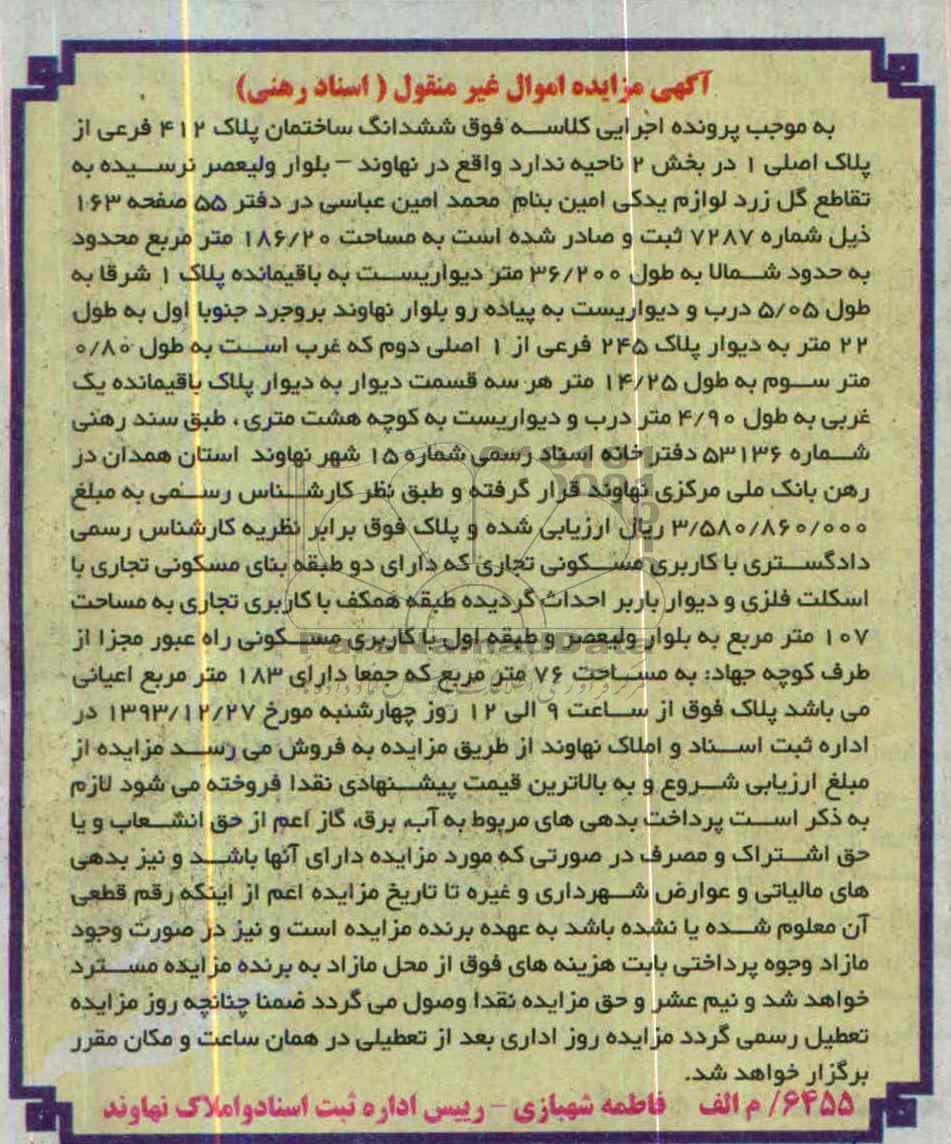 آگهی مزایده اموال غیر منقول ( اسناد رهنی)
به موجب پرونده اجرایی کلاسه فوق ششدانگ ساختمان پلاک ۴۱۲ فرعی از
پلاک اصلی ۱ در بخش ۲ ناحیه ندارد واقع در نهاوند – بلوار ولیعصر نرسیده به
تقاطع گل زرد لوازم یدکی امین بنام محمد امین عباسی در دفتر ۵۵ صفحه ۱۶۳
ذیل شماره ۷۲۸۷ ثبت و صادر شده است به مساحت ۱۸۶/۲۰ متر مربع محدود
به حدود شمالا به طول ۳۶/۲۰۰ متر دیواریست به باقیمانده پلاک ۱ شرقا به
طول ۵/۰۵ درب و دیواریست به پیاده رو بلوار نهاوند بروجرد جنوبا اول به طول
۲۲ متر به دیوار پلاک ۲۴۵ فرعی از ۱ اصلی دوم که غرب است به طول ۰/۸۰
متر سوم به طول ۱۴/۲۵ متر هر سه قسمت دیوار به دیوار پلاک باقیمانده یک
غربی به طول ۴/۹۰ متر درب و دیواریست به کوچه هشت متری ، طبق سند رهنی
شماره ۵۳۱۳۶ دفتر خانه اسناد رسمی شماره ۱۵ شهر نهاوند استان همدان در
رهن بانک ملی مرکزی نهاوند قرار گرفته و طبق نظر کارشناس رسمی به مبلغ
۳/۵۸۰/۸۶۰/۰۰۰ ریال ارزیابی شده و پلاک فوق برابر نظریه کارشناس رسمی
دادگستری با کاربری مسکونی تجاری که دارای دو طبقه بنای مسکونی تجاری با
اسکلت فلزی و دیوار باربر احداث گردیده طبقه همکف با کاربری تجاری به مساحت
۱۰۷ متر مربع به بلوار ولیعصر و طبقه اول با کاربری مسکونی راه عبور مجزا از
طرف کوچه جهاد: به مساحت ۷۶ متر مربع که جمعا دارای ۱۸۳ متر مربع اعیانی
می باشد پلاک فوق از ساعت ۹ الی ۱۲ روز چهارشنبه مورخ ۱۳۹۳/۱۲/۲۷ در
اداره ثبت اسناد و املاک نهاوند از طریق مزایده به فروش می رسد مزایده از
مبلغ ارزیابی شروع و به بالاترین قیمت پیشنهادی نقدا فروخته می شود لازم
به ذکر است پرداخت بدهی های مربوط به آب، برق، گاز اعم از حق انشعاب و یا
حق اشتراک و مصرف در صورتی که مورد مزایده دارای آنها باشد و نیز بدهی
های مالیاتی و عوارض شهرداری و غیره تا تاریخ مزایده اعم از اینکه رقم قطعی
آن معلوم شده یا نشده باشد به عهده برنده مزایده است و نیز در صورت وجود
مازاد وجوه پرداختی بابت هزینه های فوق از محل مازاد به برنده مزایده مسترد
خواهد شد و نیم عشر و حق مزایده نقدا وصول می گردد ضمنا چنانچه روز مزایده
تعطیل رسمی گردد مزایده روز اداری بعد از تعطیلی در همان ساعت و مکان مقرر
برگزار خواهد شد.
۶۴۵۵/ م الف فاطمه شهبازی – رییس اداره ثبت اسنادواملاک نهاوند
ParsNamadData